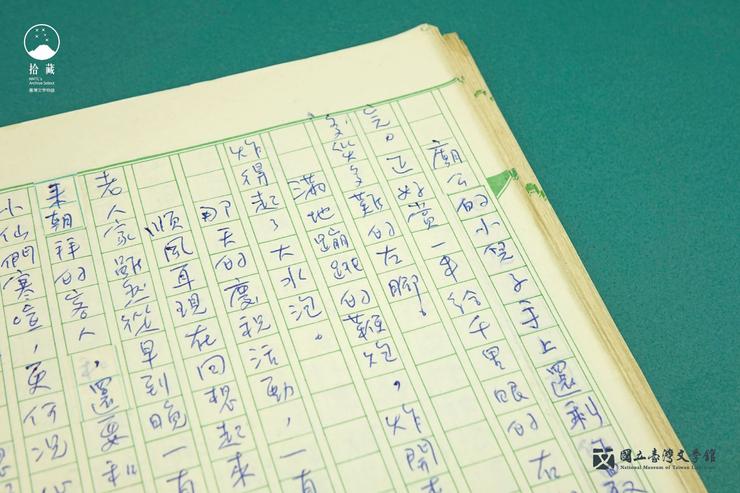 廟公的小兒子手上還剩
完。正好賞一手給千里眼的右
多災多難的右腳！
滿地蹦跳的鞭炮，炸開
炸得起了大水泡。
那天的慶祝活動，一直
順風耳現在回想起來
老人家雖然從早到晚一直
來朝拜的客人，還要和
小仙們寒暄，更何況
拾藏
NMTL's
Archive Select
臺灣文學物語
國立臺灣文學館
National Museum of Taiwan Literature